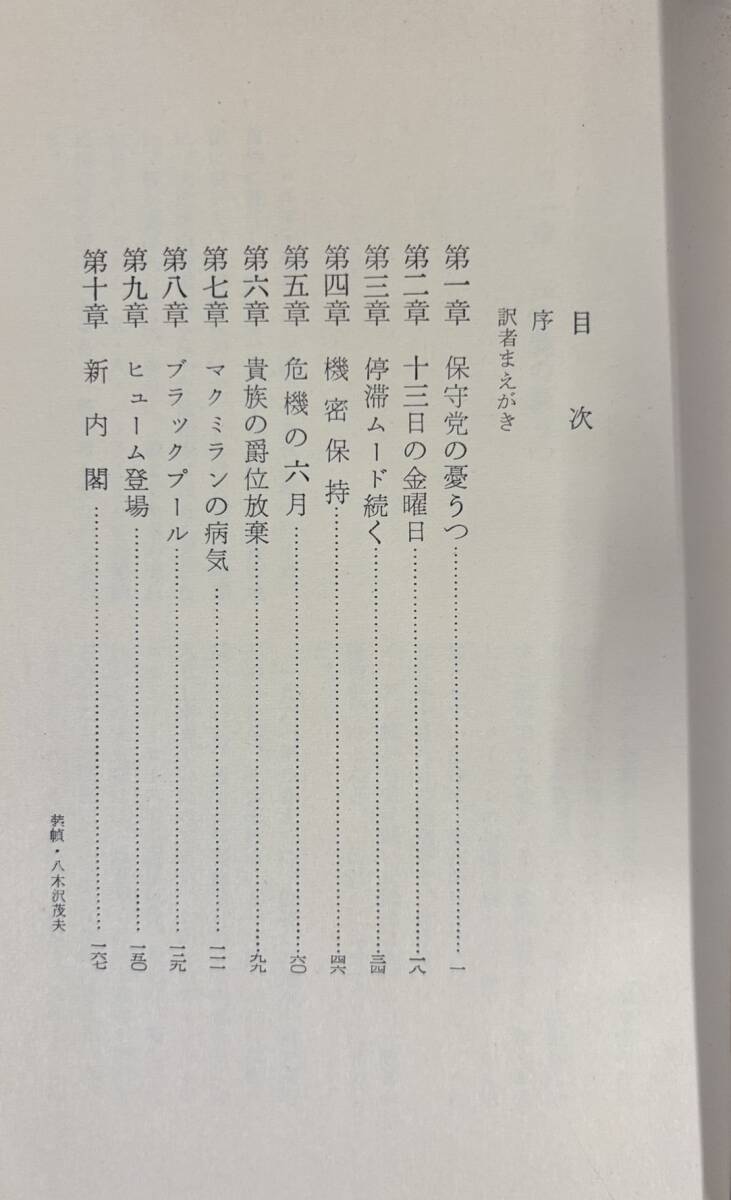 目次
序
訳者まえがき
第一章 保守党の憂うつ……一
第二章 十三日の金曜日……一八
第三章 停滞ムード続く……三四
第四章 機密保持……四六
第五章 危機の六月……六〇
第六章 貴族の爵位放棄……九九
第七章 マクミランの病気……一一一
第八章 ブラックプール……一二九
第九章 ヒューム登場……一五〇
第十章 新内閣……一六七
装幀・八木沢茂夫